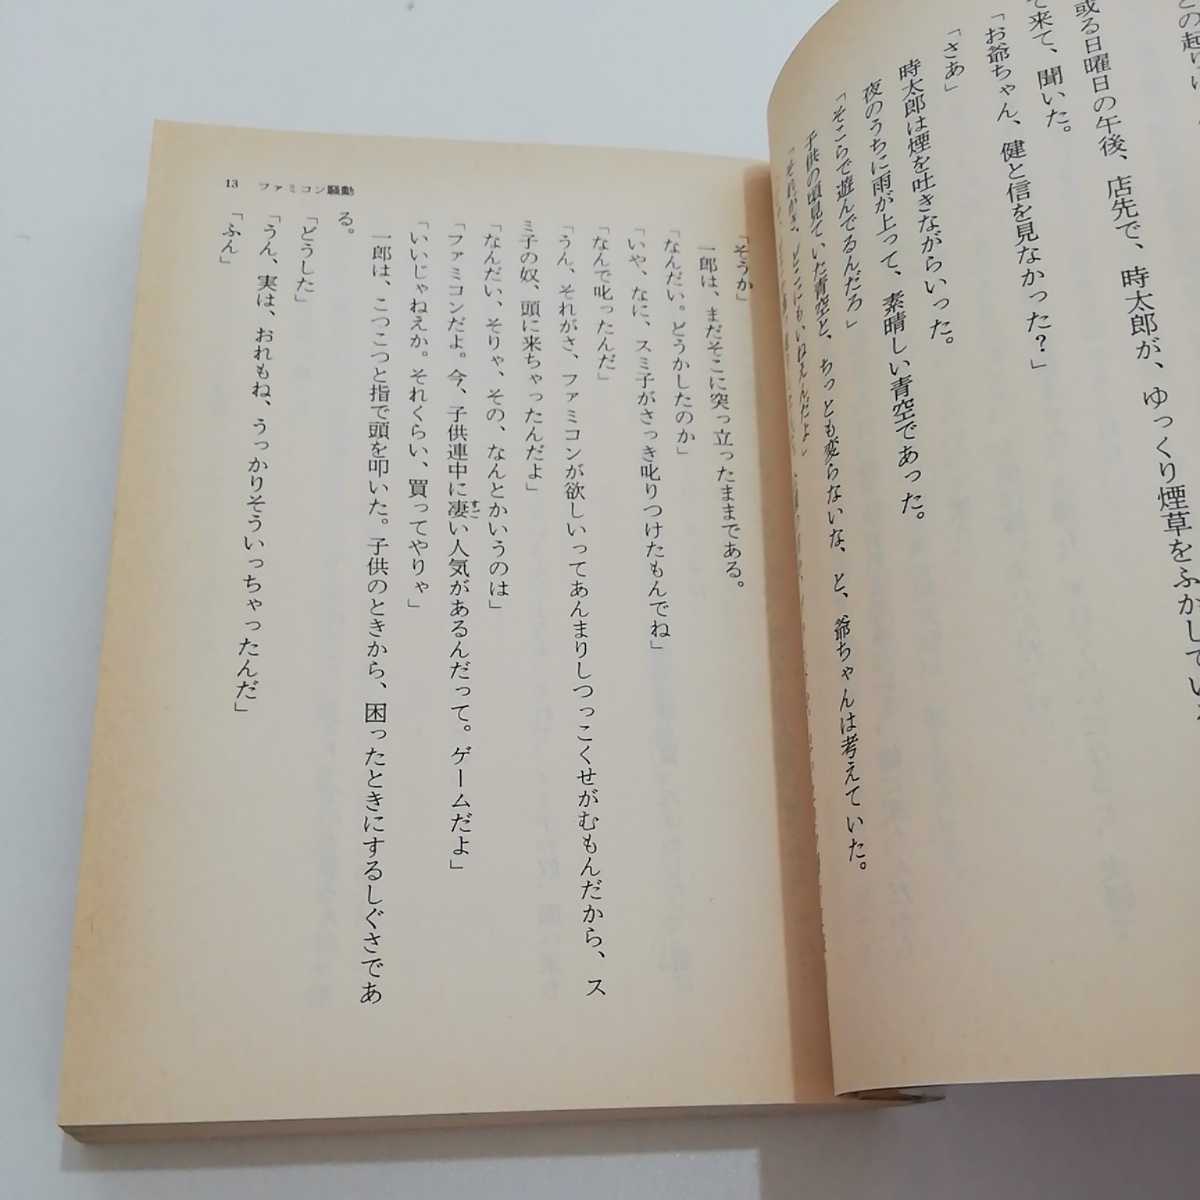 との起りは
或る日曜日の午後、店先で、時太郎が、ゆっくり煙草をふかしている
て来て、聞いた。
「お爺ちゃん、健と信を見なかった？」
「さあ」
時太郎は煙を吐きながらいった。
夜のうちに雨が上って、素晴しい青空であった。
「そこらで遊んでるんだろ」
子供の頃見ていた青空と、ちっとも変らないな、と、爺ちゃんは考えていた。
「それがさ、どこにもいねえんだよ」
13 ファミコン騒動
「そうか」
一郎は、まだそこに突っ立ったままである。
「なんだい。どうかしたのか」
「いや、なに、スミ子がさっき叱りつけたもんでね」
「なんで叱ったんだ」
「うん、それがさ、ファミコンが欲しいってあんまりしつっこくせがむもんだから、ス
ミ子の奴、頭に来ちゃったんだよ」
「なんだい、そりゃ、その、なんとかいうのは」
「ファミコンだよ。今、子供連中に凄い人気があるんだって。ゲームだよ」
すご
「いいじゃねえか。それくらい、買ってやりゃ」
一郎は、こつこつと指で頭を叩いた。子供のときから、困ったときにするしぐさであ
る。
「どうした」
「うん、実は、おれもね、うっかりそういっちゃったんだ」
「ふん」